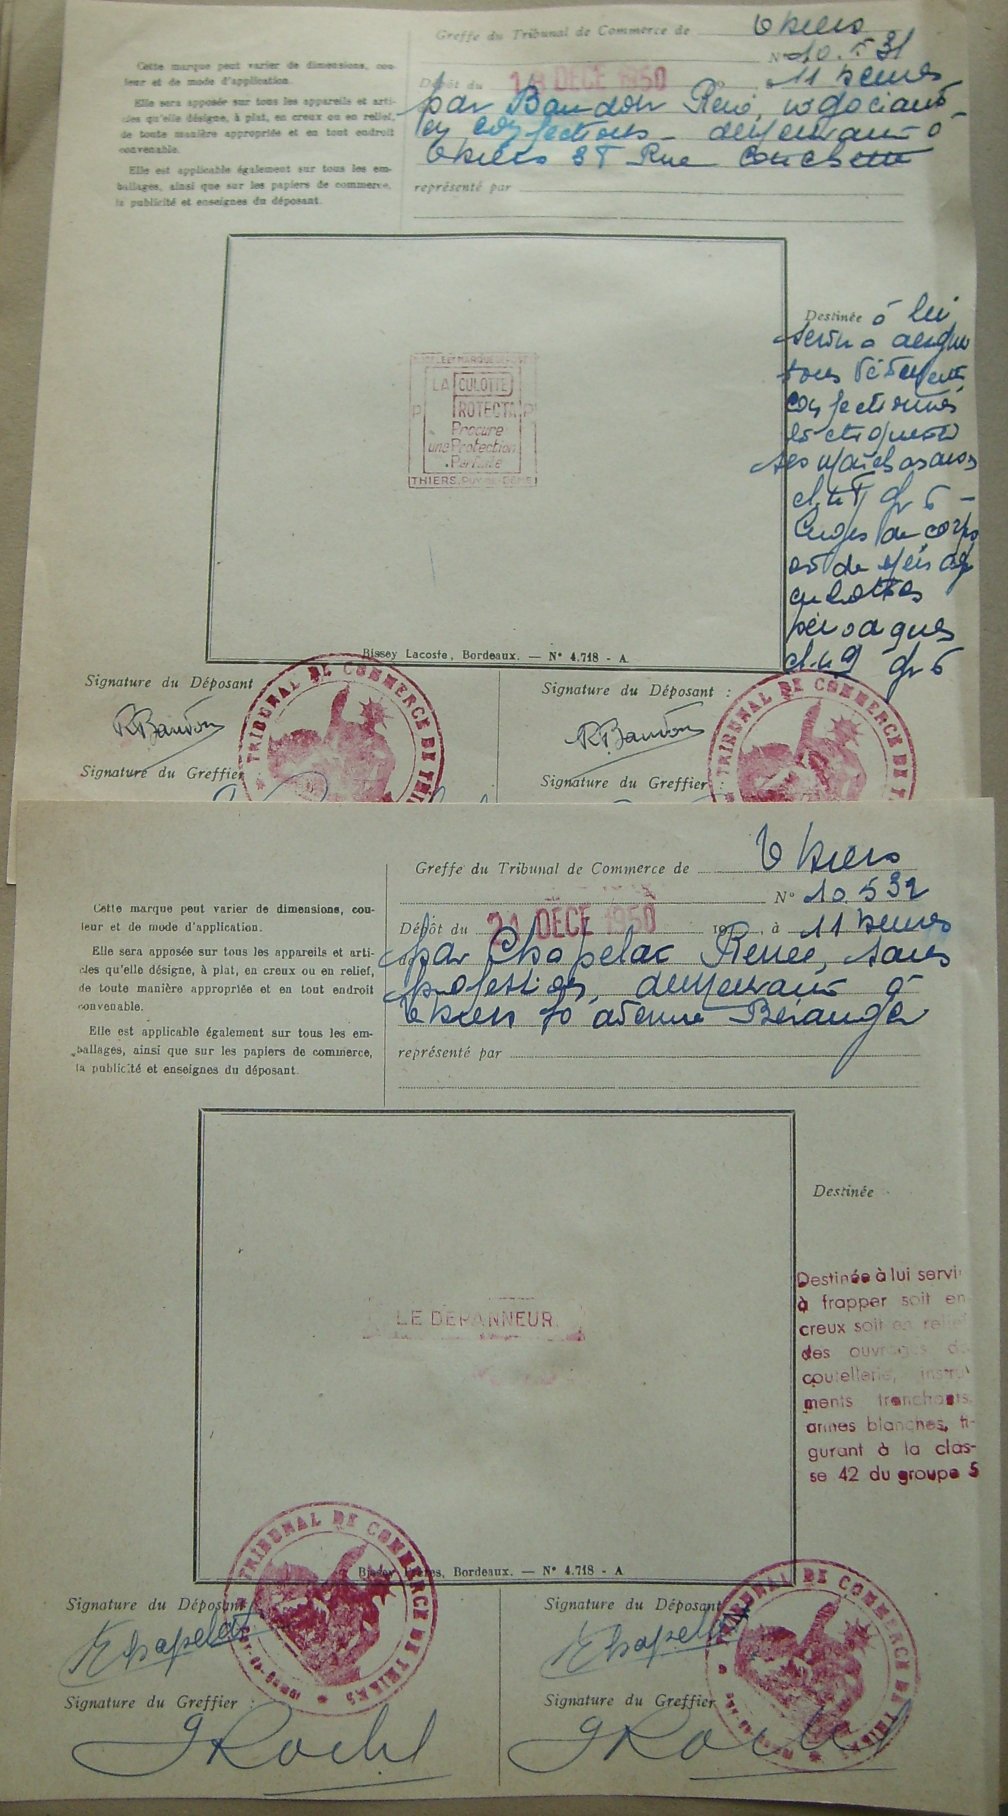 Greffe du Tribunal de Commerce de Thiers
N° 10.531
Cette marque peut varier de dimensions, cou-
leur et de mode d'application.
Elle sera apposée sur tous les appareils et arti-
cles qu'elle désigne, à plat, en creux ou en relief,
de toute manière appropriée et en tout endroit
convenable.
Elle est applicable également sur tous les em-
ballages, ainsi que sur les papiers de commerce,
la publicité et enseignes du déposant.
Dépôt du DECE 1950 à 11 heures
par Baudon René, négociant
en confections demeurant à
Thiers Rue
représenté par
Destinée à lui
servir à désigner
tous vêtements
confectionnés
Linges de corps
et de
culottes
LA CULOTTE
PROTECTA
Procure
une Protection
Parfaite
THIERS. PUY-DE-DÔME
Bissey Lacoste, Bordeaux. — N° 4.718 - A
Signature du Déposant
RBaudon
Signature du Greffier
Signature du Déposant :
RBaudon
Signature du Greffier :
TRIBUNAL DE COMMERCE DE THIERS
TRIBUNAL DE COMMERCE DE THIERS
Greffe du Tribunal de Commerce de Thiers
N° 10.532
Cette marque peut varier de dimensions, cou-
leur et de mode d'application.
Elle sera apposée sur tous les appareils et arti-
cles qu'elle désigne, à plat, en creux ou en relief,
de toute manière appropriée et en tout endroit
convenable.
Elle est applicable également sur tous les em-
ballages, ainsi que sur les papiers de commerce,
la publicité et enseignes du déposant.
Dépôt du 21 DECE 1950 19 , à 11 heures
par Chapelat Renée, sans
profession, demeurant à
Thiers 70 avenue Béranger
représenté par
Destinée
Destinée à lui servir
à frapper soit en
creux soit en relief
des ouvrages de
coutellerie, instru-
ments tranchants,
armes blanches, fi-
gurant à la clas-
se 42 du groupe 5
LE DEPANNEUR.
Bissey Frères, Bordeaux. — N° 4.718 - A
Signature du Déposant
Chapelat
Signature du Greffier :
Signature du Déposant
Chapelat
Signature du Greffier
TRIBUNAL DE COMMERCE DE THIERS
TRIBUNAL DE COMMERCE DE THIERS